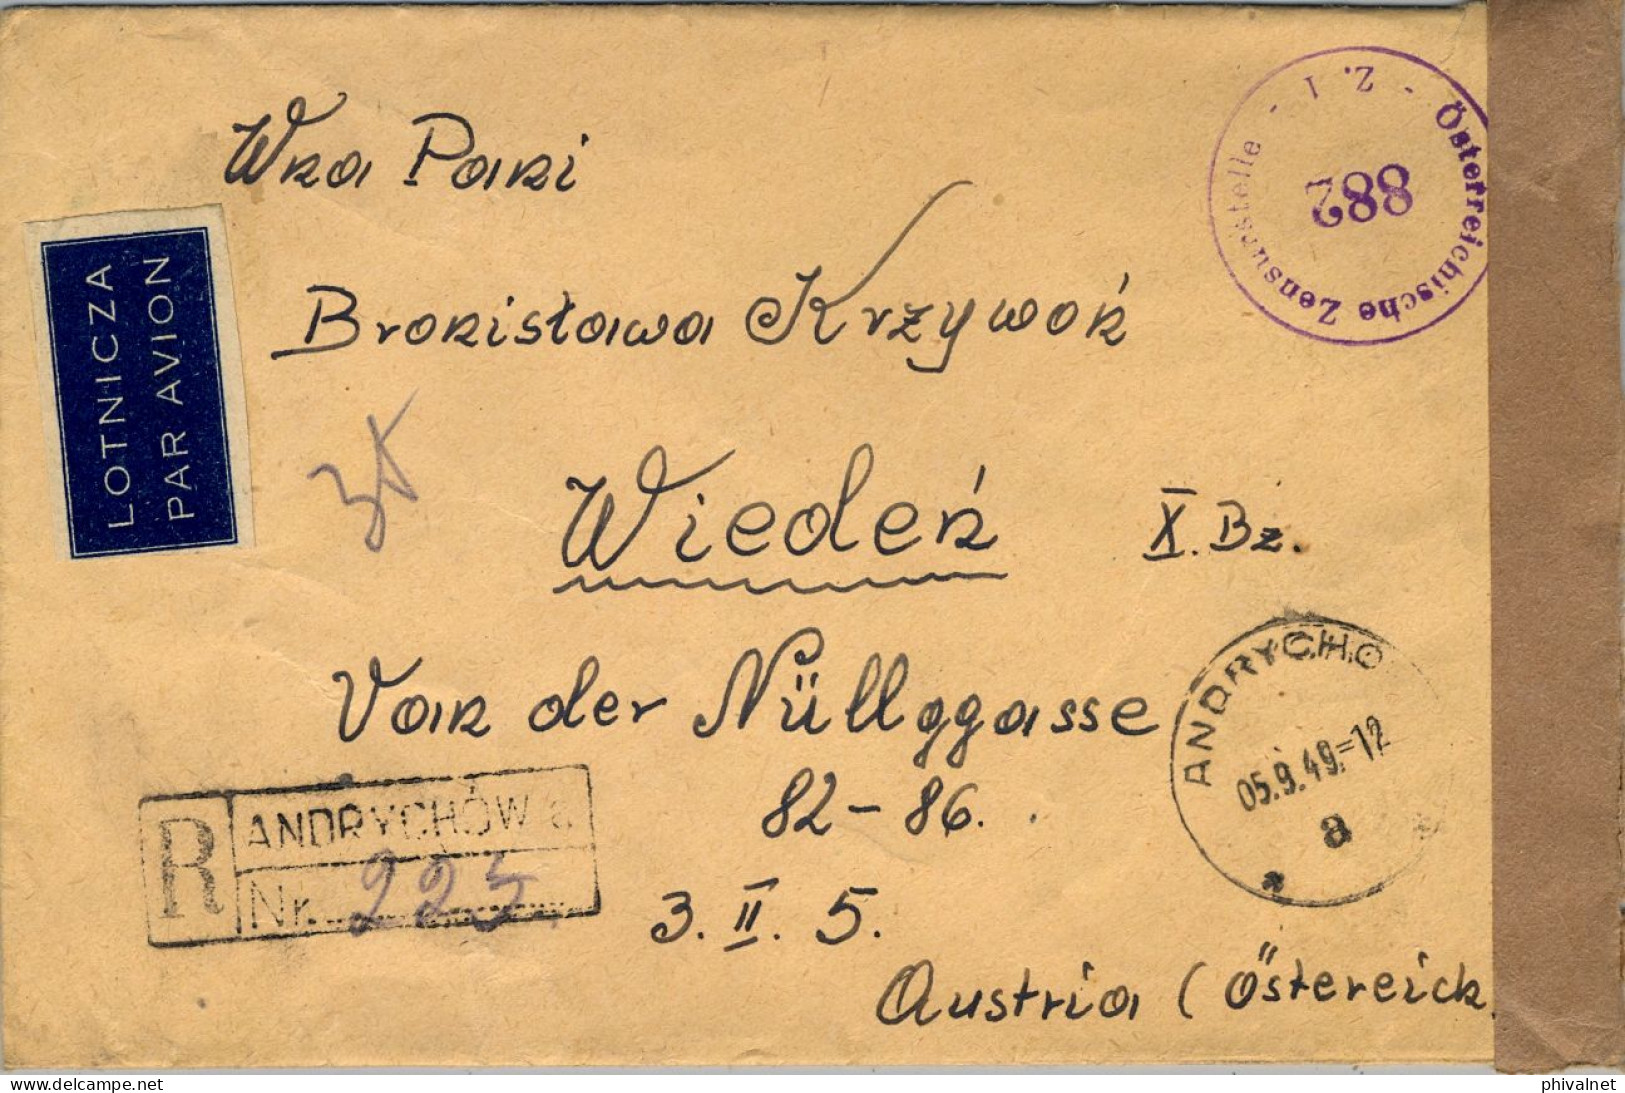 Österreichische Zensurstelle - Z. I -
882
Wna Pani
LOTNICZA
PAR AVION
Bronisława Krzywoń
Wiedeń X. Bz.
Van der Nüllggasse
82-86.
3. II. 5.
Austria (Östereick
ANDRYCHO
05.9.49.=12
a
R ANDRYCHÓW a
Nr. 225
phivalnet